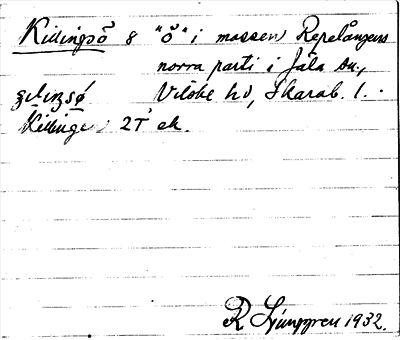 Killingsö 8 "ö" i mossen Repelångens
norra parti i Jäla sn.,
Vilske hd, Skarab. l.
Killingen 2T ek.
R Ljunggren 1932.